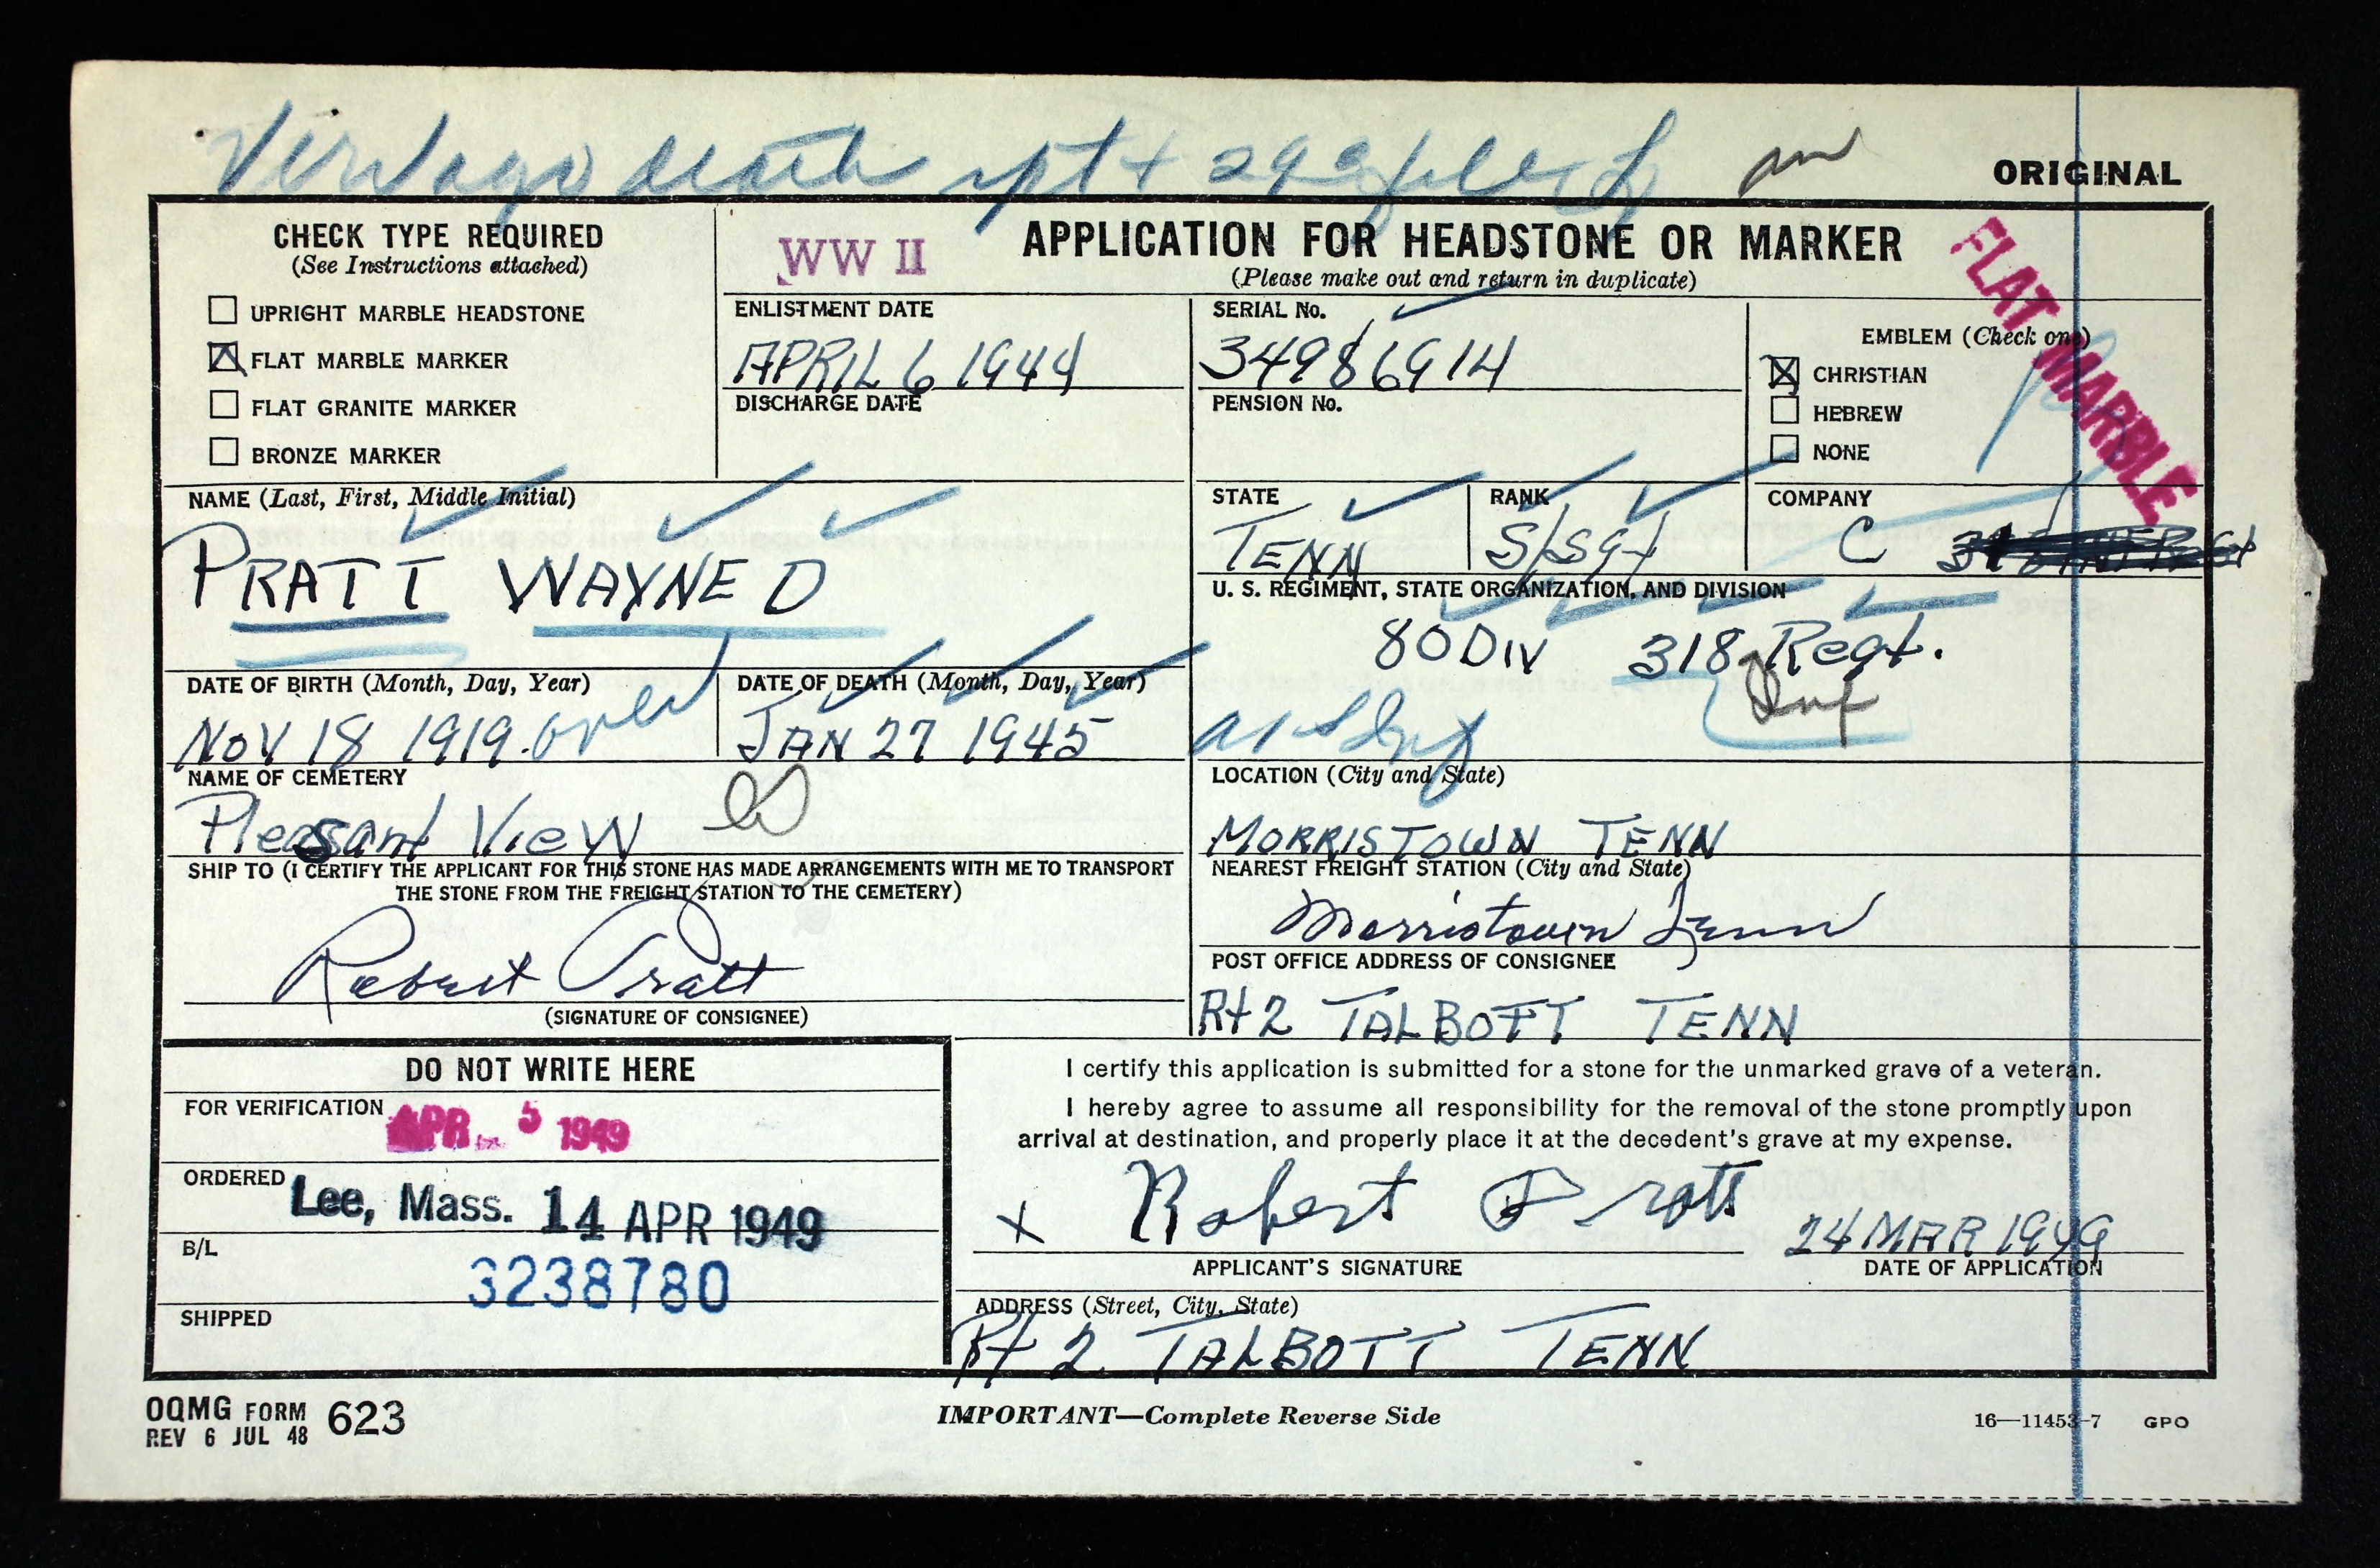 death rpt +
ORIGINAL
CHECK TYPE REQUIRED
(See Instructions attached)
UPRIGHT MARBLE HEADSTONE
FLAT MARBLE MARKER
FLAT GRANITE MARKER
BRONZE MARKER
WW II
APPLICATION FOR HEADSTONE OR MARKER
(Please make out and return in duplicate)
FLAT MARBLE
ENLISTMENT DATE
APRIL 6 1944
DISCHARGE DATE
SERIAL No.
34986914
PENSION No.
EMBLEM (Check one)
CHRISTIAN
HEBREW
NONE
NAME (Last, First, Middle Initial)
PRATT WAYNE D
STATE
TENN
RANK
S/Sgt
COMPANY
C
U. S. REGIMENT, STATE ORGANIZATION, AND DIVISION
80 Div 318 Regt.
Inf
DATE OF BIRTH (Month, Day, Year)
Nov 18 1919. over
DATE OF DEATH (Month, Day, Year)
JAN 27 1945
NAME OF CEMETERY
Pleasant View
LOCATION (City and State)
MORRISTOWN TENN
SHIP TO (I CERTIFY THE APPLICANT FOR THIS STONE HAS MADE ARRANGEMENTS WITH ME TO TRANSPORT
THE STONE FROM THE FREIGHT STATION TO THE CEMETERY)
Robert Pratt
(SIGNATURE OF CONSIGNEE)
NEAREST FREIGHT STATION (City and State)
Morristown Tenn
POST OFFICE ADDRESS OF CONSIGNEE
Rt 2 TALBOTT TENN
DO NOT WRITE HERE
FOR VERIFICATION
APR 5 1949
ORDERED
Lee, Mass. 14 APR 1949
B/L
3238780
SHIPPED
I certify this application is submitted for a stone for the unmarked grave of a veteran.
I hereby agree to assume all responsibility for the removal of the stone promptly upon
arrival at destination, and properly place it at the decedent's grave at my expense.
X Robert Pratt
24 MAR 1949
APPLICANT'S SIGNATURE
DATE OF APPLICATION
ADDRESS (Street, City, State)
Rt 2 TALBOTT TENN
OQMG FORM 623
REV 6 JUL 48
IMPORTANT—Complete Reverse Side
16—11453-7 GPO